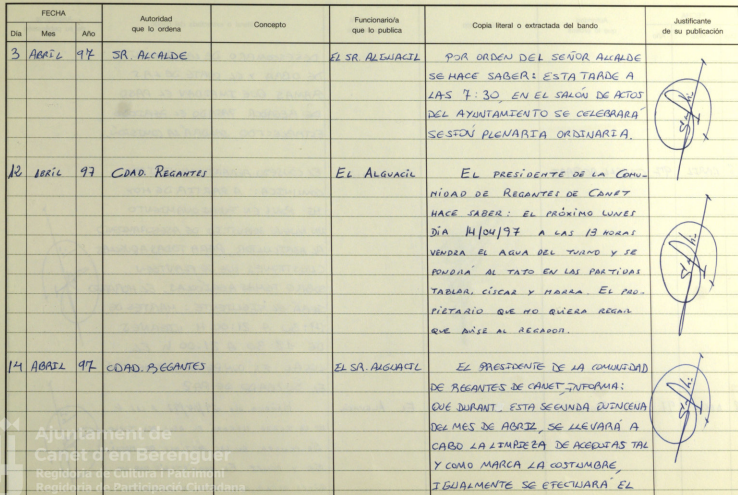 FECHA
Autoridad
que lo ordena
Concepto
Funcionario/a
que lo publica
Copia literal o extractada del bando
Justificante
de su publicación
Día Mes Año
3 ABRIL 97 SR. ALCALDE EL SR. ALGUACIL POR ORDEN DEL SEÑOR ALCALDE
SE HACE SABER: ESTA TARDE A
LAS 7:30, EN EL SALÓN DE ACTOS
DEL AYUNTAMIENTO SE CELEBRARÁ
SESIÓN PLENARIA ORDINARIA.
12 ABRIL 97 CDAD. REGANTES EL ALGUACIL EL PRESIDENTE DE LA COMU-
NIDAD DE REGANTES DE CANET
HACE SABER: EL PRÓXIMO LUNES
DÍA 14/04/97 A LAS 13 HORAS
VENDRA EL AGUA DEL TURNO Y SE
PONDRÁ AL TATO EN LAS PARTIDAS
TABLAR, CÍSCAR Y MARRA. EL PRO-
PIETARIO QUE NO QUIERA REGAR
QUE AVISE AL REGADOR.
14 ABRIL 97 CDAD. REGANTES EL SR. ALGUACIL EL PRESIDENTE DE LA COMUNIDAD
DE REGANTES DE CANET, INFORMA:
QUE DURANT. ESTA SEGUNDA QUINCENA
DEL MES DE ABRIL, SE LLEVARÁ A
CABO LA LIMPIEZA DE ACEQUIAS TAL
Y COMO MARCA LA COSTUMBRE,
IGUALMENTE SE EFECTUARÁ EL
Ajuntament de
Canet d'en Berenguer
Regidoria de Cultura i Patrimoni
Regidoria de Participació Ciutadana